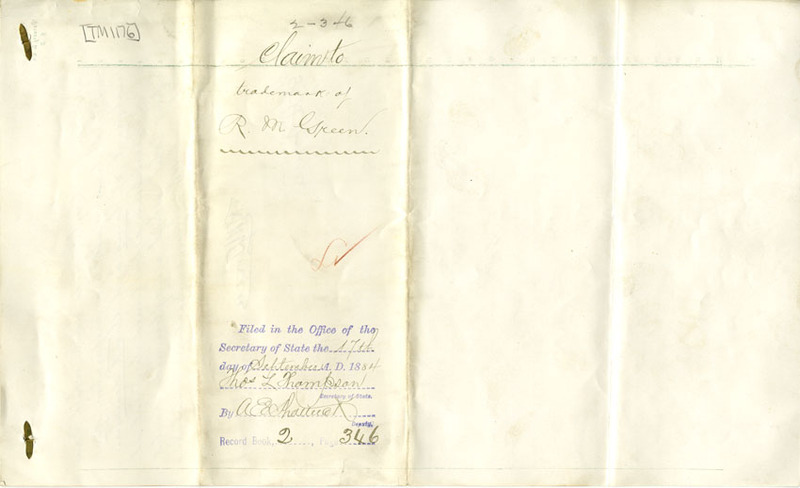 [TM1176]
2-346
Claim to
trademark of
R. M. Green.
Filed in the Office of the
Secretary of State the 17th
day of September A. D. 1884
Thos L Thompson
Secretary of State.
By A E Shattuck
Deputy.
Record Book, 2 Page 346